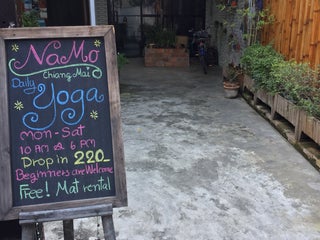 NaMo
Chiang Mai
Daily
Yoga
Mon - Sat
10 AM & 6 PM
Drop in 220.-
Beginners are Welcome
Free! Mat rental